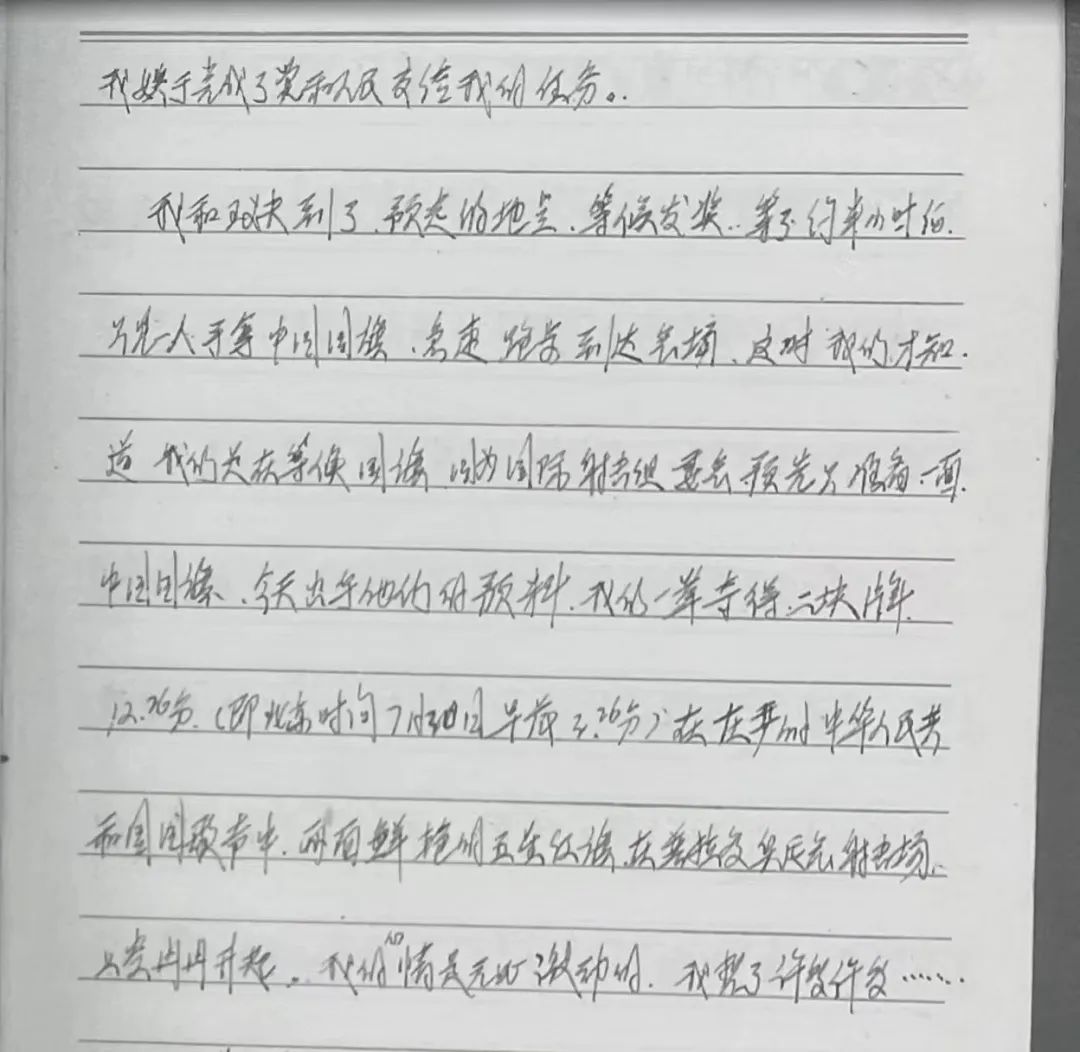 我终于完成了党和人民交给我的任务。
我和玉决到了、预定的地点、等候发奖..等了约半小时伯.
只见一人手拿中国国旗、急速跑步到达会场、这时我们才知.
道我们是在等候国旗因为国际射击组委会预先只准备一面.
中国国旗、今天出乎他们的预料、我们一举夺得二块牌.
12.26分.(即北京时间7月30日早晨3.26分)在庄严的中华人民共
和国国歌声中、两面鲜艳的五星红旗、在普拉多奥运会射击场、
上空冉冉升起。我的心情是无比激动的、我想了许多许多……